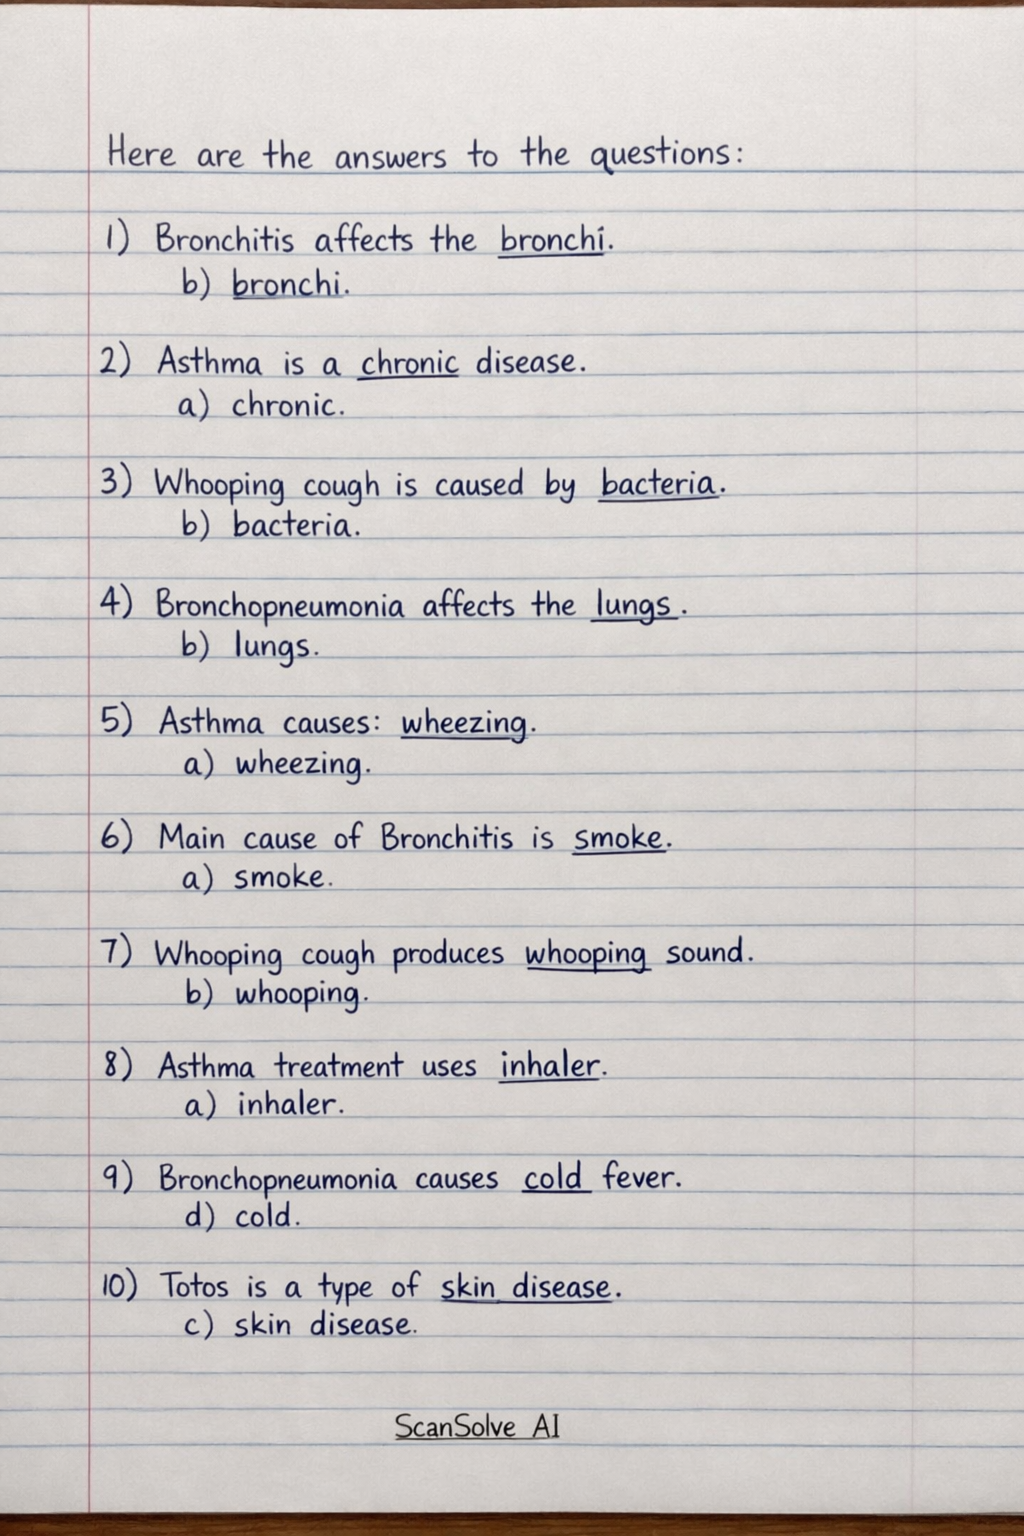 Here are the answers to the questions:
1) Bronchitis affects the bronchi.
b) bronchi.
2) Asthma is a chronic disease.
a) chronic.
3) Whooping cough is caused by bacteria.
b) bacteria.
4) Bronchopneumonia affects the lungs.
b) lungs.
5) Asthma causes: wheezing.
a) wheezing.
6) Main cause of Bronchitis is smoke.
a) smoke.
7) Whooping cough produces whooping sound.
b) whooping.
8) Asthma treatment uses inhaler.
a) inhaler.
9) Bronchopneumonia causes cold fever.
d) cold.
10) Totos is a type of skin disease.
c) skin disease.
ScanSolve AI